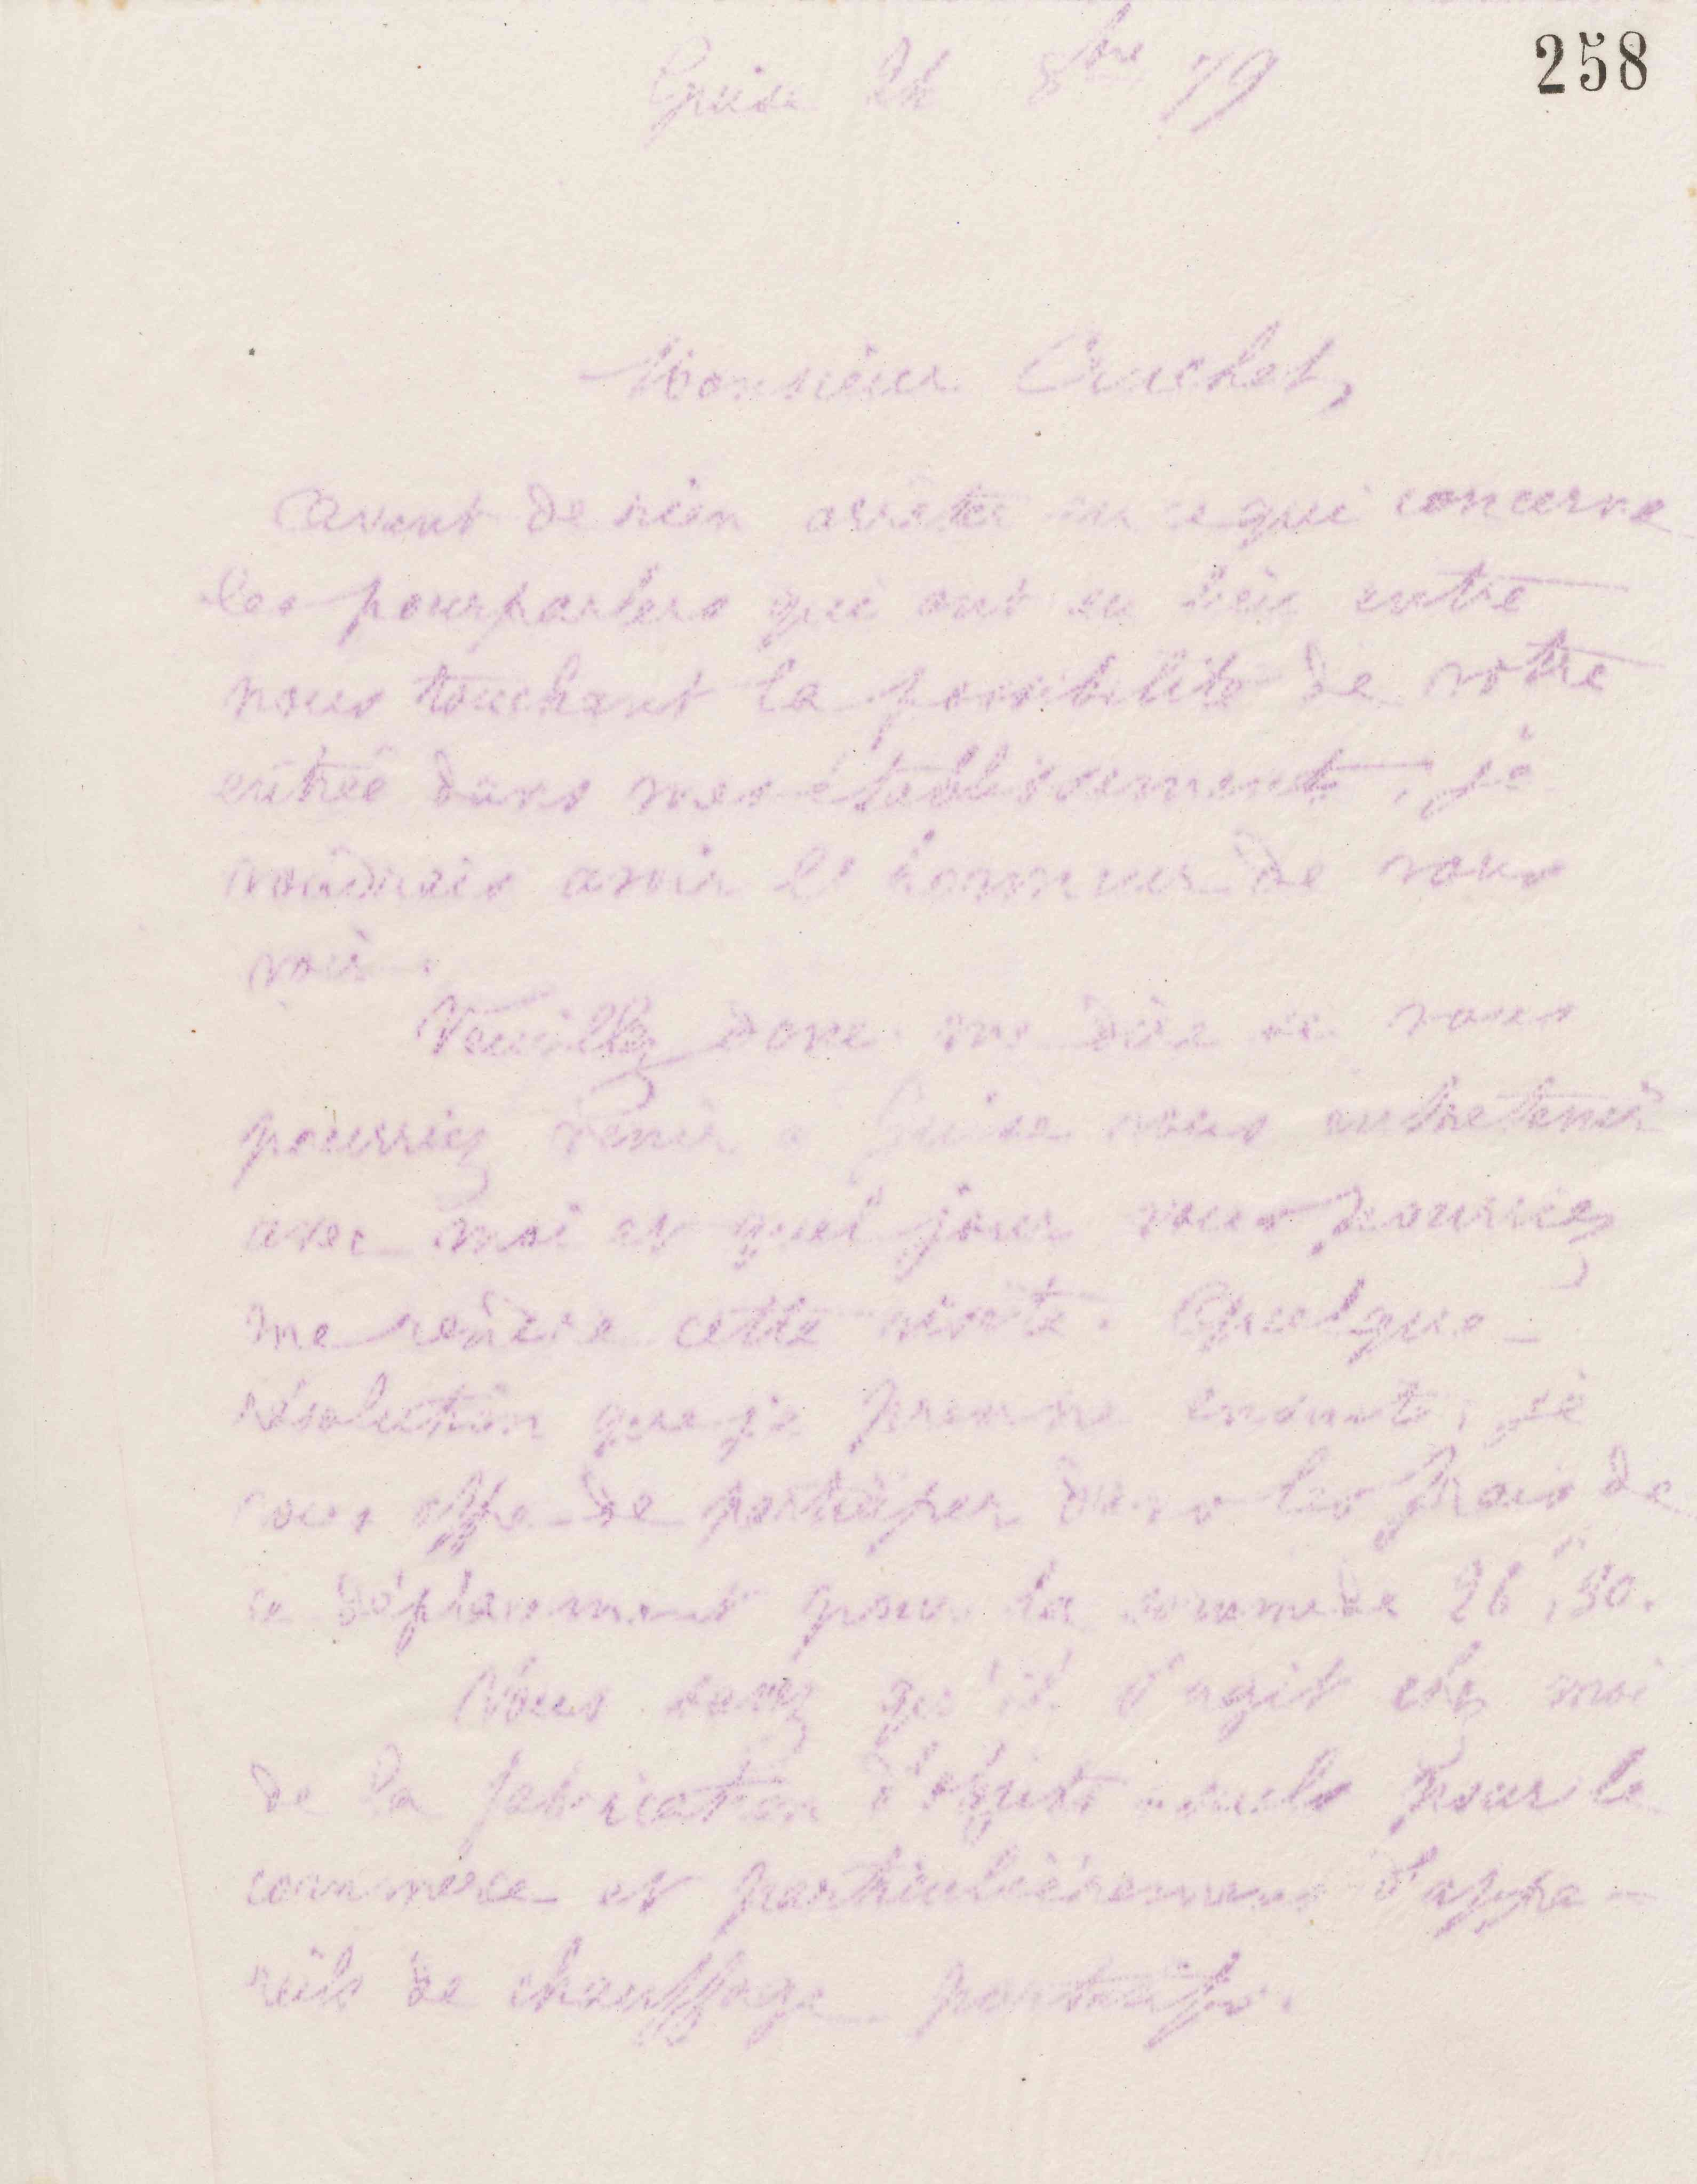 258
Guise 24 8bre 79
Monsieur Cruchet,
Avant de rien arrêter en ce qui concerne
les pourparlers qui ont eu lieu entre
nous touchant la possibilité de votre
entrée dans mes établissements, je
voudrais avoir l'honneur de vous
voir.
Veuillez donc me dire si vous
pourriez venir à Guise vous entretenir
avec moi et quel jour vous pourriez
me rendre cette visite. Quelque
résolution que je prenne ensuite, je
vous offre de participer dans les frais de
ce déplacement pour la somme de 26 f,50.
Vous savez qu'il s'agit chez moi
de la fabrication d'objets usuels pour le
commerce et particulièrement d'appa-
reils de chauffage portatifs.